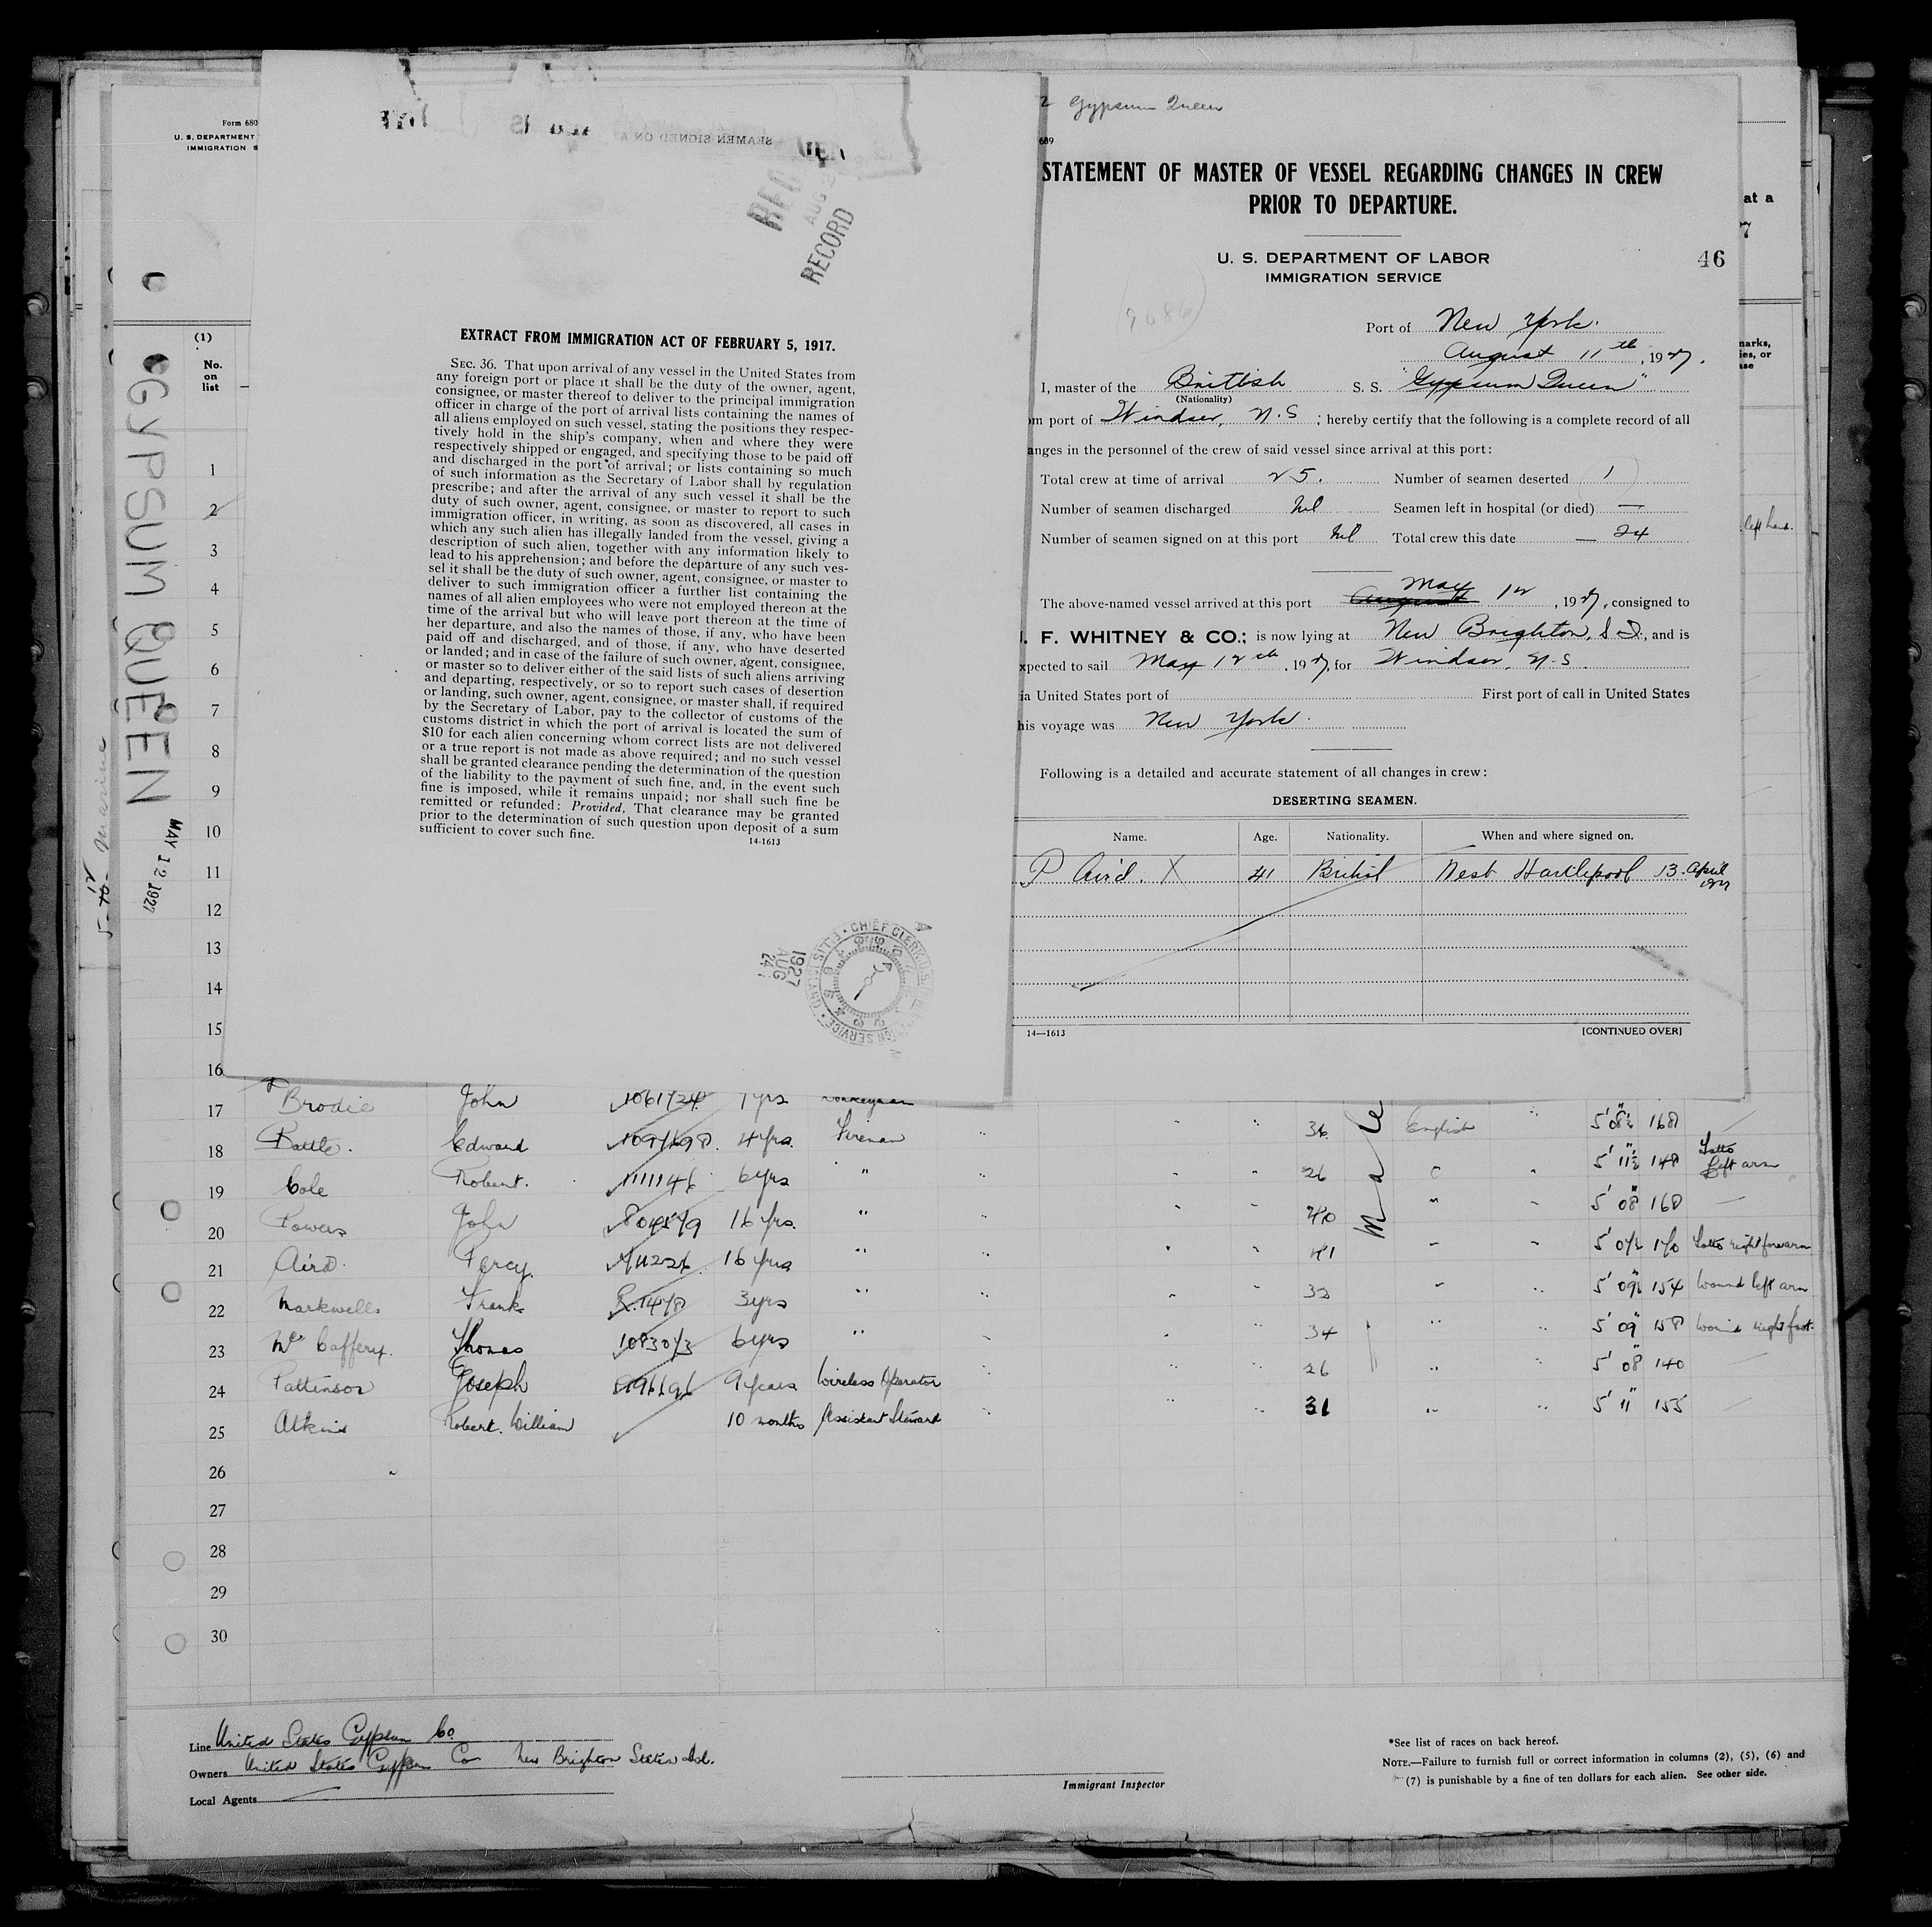 Form 680
U. S. DEPARTMENT
IMMIGRATION S
(1)
No.
on
list
GYPSUM QUEEN
MAY 12 1927
SEAMEN SIGNED ON A
AUG 2
RECORD
EXTRACT FROM IMMIGRATION ACT OF FEBRUARY 5, 1917.
SEC. 36. That upon arrival of any vessel in the United States from
any foreign port or place it shall be the duty of the owner, agent,
consignee, or master thereof to deliver to the principal immigration
officer in charge of the port of arrival lists containing the names of
all aliens employed on such vessel, stating the positions they respec-
tively hold in the ship's company, when and where they were
respectively shipped or engaged, and specifying those to be paid off
and discharged in the port of arrival; or lists containing so much
of such information as the Secretary of Labor shall by regulation
prescribe; and after the arrival of any such vessel it shall be the
duty of such owner, agent, consignee, or master to report to such
immigration officer, in writing, as soon as discovered, all cases in
which any such alien has illegally landed from the vessel, giving a
description of such alien, together with any information likely to
lead to his apprehension; and before the departure of any such ves-
sel it shall be the duty of such owner, agent, consignee, or master to
deliver to such immigration officer a further list containing the
names of all alien employees who were not employed thereon at the
time of the arrival but who will leave port thereon at the time of
her departure, and also the names of those, if any, who have been
paid off and discharged, and of those, if any, who have deserted
or landed; and in case of the failure of such owner, agent, consignee,
or master so to deliver either of the said lists of such aliens arriving
and departing, respectively, or so to report such cases of desertion
or landing, such owner, agent, consignee, or master shall, if required
by the Secretary of Labor, pay to the collector of customs of the
customs district in which the port of arrival is located the sum of
$10 for each alien concerning whom correct lists are not delivered
or a true report is not made as above required; and no such vessel
shall be granted clearance pending the determination of the question
of the liability to the payment of such fine, and, in the event such
fine is imposed, while it remains unpaid; nor shall such fine be
remitted or refunded: Provided, That clearance may be granted
prior to the determination of such question upon deposit of a sum
sufficient to cover such fine.
14-1613
1927
AUG
24
Gypsum Queen
689
STATEMENT OF MASTER OF VESSEL REGARDING CHANGES IN CREW
PRIOR TO DEPARTURE.
U. S. DEPARTMENT OF LABOR
IMMIGRATION SERVICE
46
Port of New York.
August 11th, 1927.
I, master of the British S. S. "Gypsum Queen"
(Nationality)
om port of Windsor, N.S ; hereby certify that the following is a complete record of all
anges in the personnel of the crew of said vessel since arrival at this port:
Total crew at time of arrival 25. Number of seamen deserted 1
Number of seamen discharged Nil Seamen left in hospital (or died) —
Number of seamen signed on at this port Nil Total crew this date — 24
The above-named vessel arrived at this port August May 12, 1927, consigned to
. F. WHITNEY & CO.; is now lying at New Brighton, S I, and is
xpected to sail May 12th, 1927, for Windsor, N.S.
ia United States port of First port of call in United States
his voyage was New York.
Following is a detailed and accurate statement of all changes in crew:
DESERTING SEAMEN.
Name. Age. Nationality. When and where signed on.
P Aird. X 41 British West Hartlepool 13. April 1927
14—1613 [CONTINUED OVER]
at a
7
narks,
ies, or
ase
left hand.
1
2
3
4
5
6
7
8
9
10
11
12
13
14
15
16
17 Brodie John 1061724 7yrs 36 Male English " 5' 08½" 168
18 Battle. Edward 1091698. 4yrs. Fireman 26 5' 11½" 148 Tatto left arm
19 Cole Robert. 1111146 6yrs " 5' 08" 160 —
20 Powers John 16 yrs. " 40
21 Aird. Percy. 16 yrs " 41 Tatto right forearm
22 Markwells Frank 3yrs " 5' 09½" 154 wound left arm
23 McCaffery. Thomas 1083073 6yrs " 34 5' 09" 158 wound right foot.
24 Pattinson Joseph 9 years Wireless Operator 26 5' 08" 140
25 Atkins Robert. William 10 months Assistant Steward 31 5' 11" 155
26
27
28
29
30
Line United States Gypsum Co.
Owners United States Gypsum Co New Brighton Staten Isl.
Local Agents
Immigrant Inspector
*See list of races on back hereof.
NOTE.—Failure to furnish full or correct information in columns (2), (5), (6) and
(7) is punishable by a fine of ten dollars for each alien. See other side.